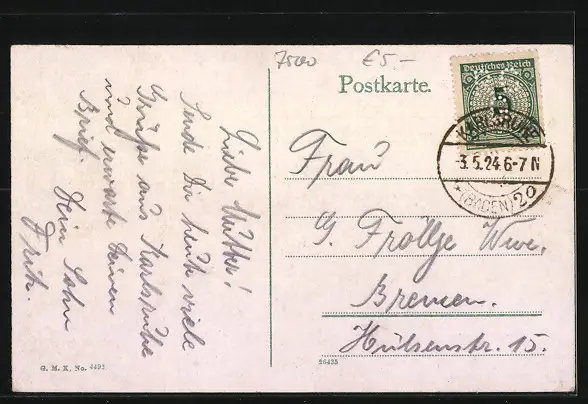 75200 €5.-
Postkarte.
Deutsches Reich
5
KARLSRUHE
3.5.24.6-7 N
(BADEN) 20
Liebe Mutter!
Sende Dir heute viele
Grüße aus Karlsruhe
und erwarte Deinen
Brief. Dein Sohn
Frau
G. Frollje Wwe.
Bremen.
Hulsenstr. 15.
G. M. K. No. 4493
26425